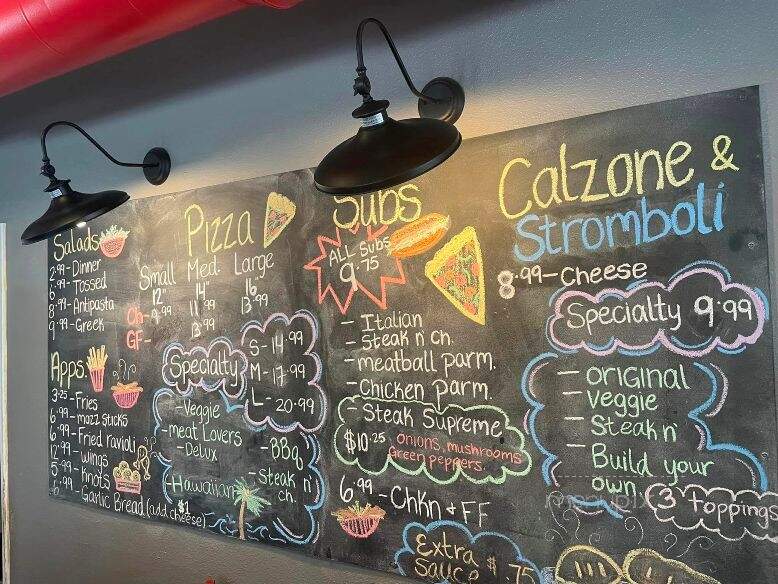 Salads
2.99 - Dinner
Tossed
8.99 - Antipasta
9.99 - Greek
Apps.
3.25 - Fries
6.99 - mozz sticks
6.99 - Fried ravioli
12.99 - wings
5.99 - knots
Garlic Bread (add cheese) $1
Pizza
Small Med. Large
12" 14" 16
Ch- 9.99 11.99 13.99
GF- 13.99
Specialty
S - 14.99
M - 17.99
L - 20.99
- Veggie
- meat Lovers
- Delux
- BBQ
- Hawaiian
- Steak n'
ch.
Subs
ALL Subs
9.75
- Italian
- Steak n' ch.
- meatball parm.
- Chicken parm.
- Steak Supreme
$10.25 onions, mushrooms
Green peppers.
6.99 - Chkn + FF
Extra $.75
sauce
Calzone &
Stromboli
8.99 - Cheese
Specialty 9.99
- original
- veggie
- Steak n'
- Build your
own
3 toppings